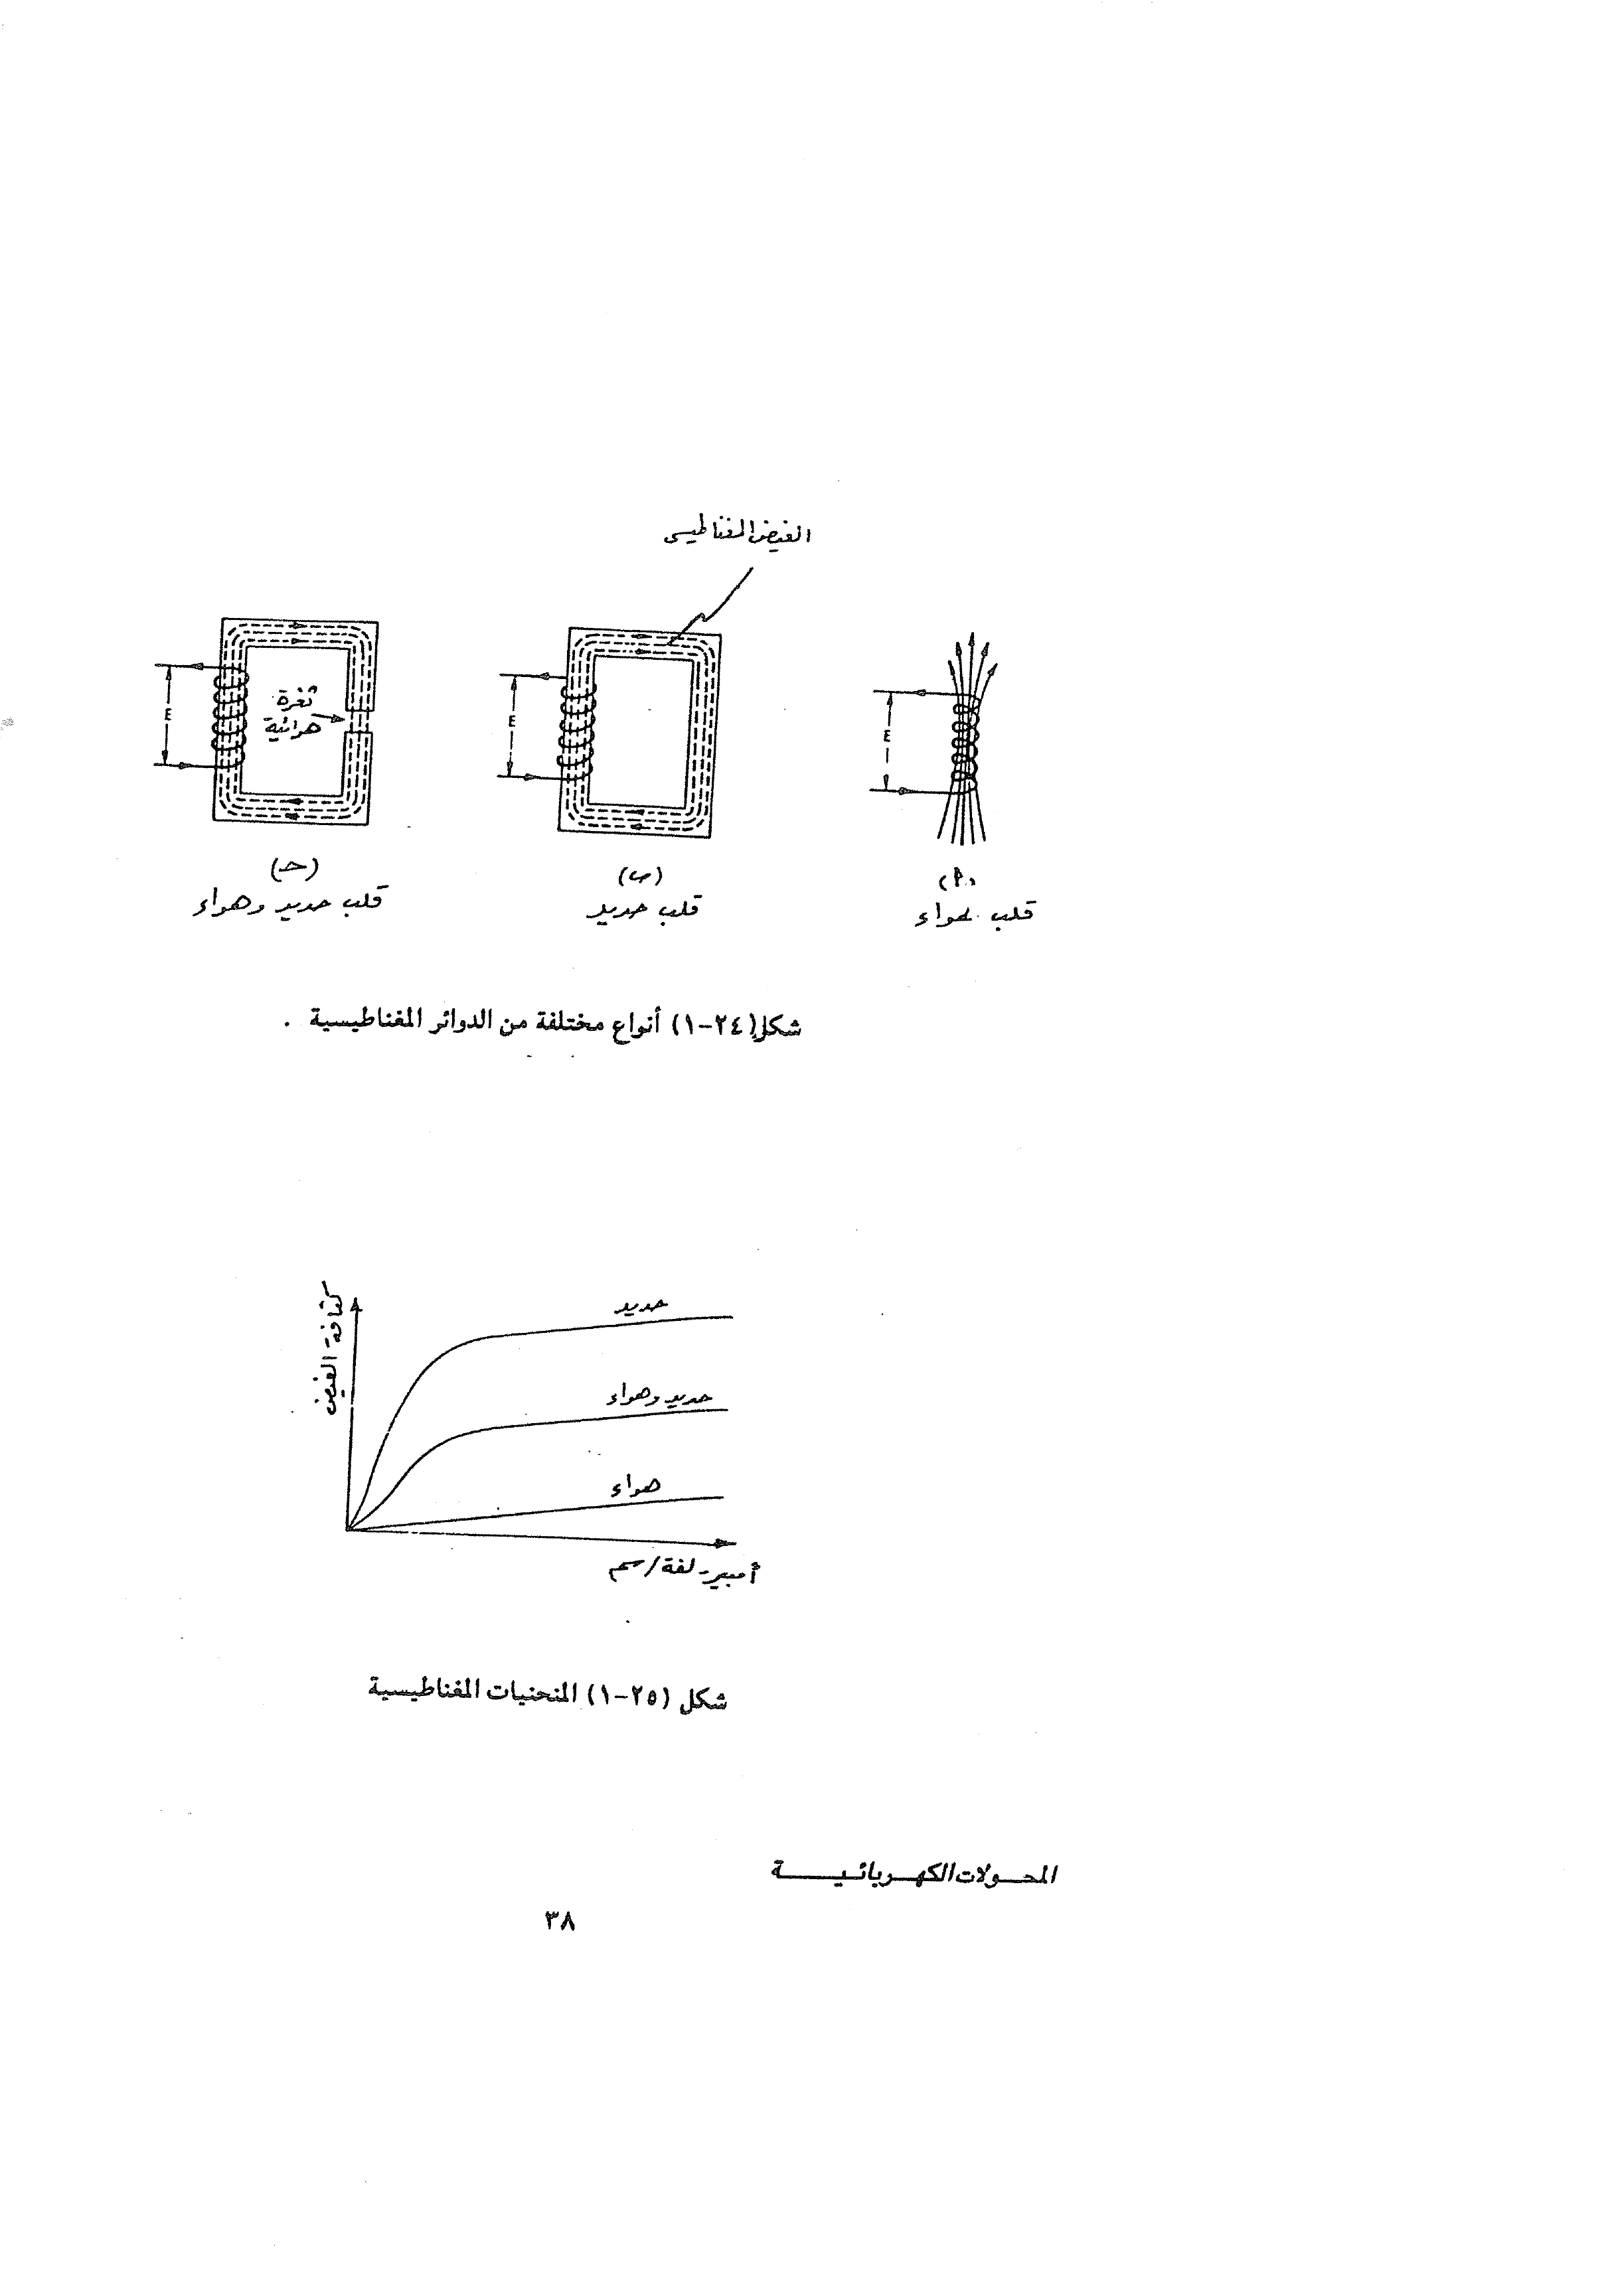 الفيض المغناطيسى
E
E
E
ثغرة
هوائية
(أ)
(ب)
(حـ)
قلب هواء
قلب حديد
قلب حديد وهواء
شكل (٢٤-١) أنواع مختلفة من الدوائر المغناطيسية .
كثافة الفيض
حديد
حديد وهواء
هواء
أمبير- لفة/سم
شكل (٢٥-١) المنحنيات المغناطيسية
المحـولات الكهـربائـيـــة
٣٨